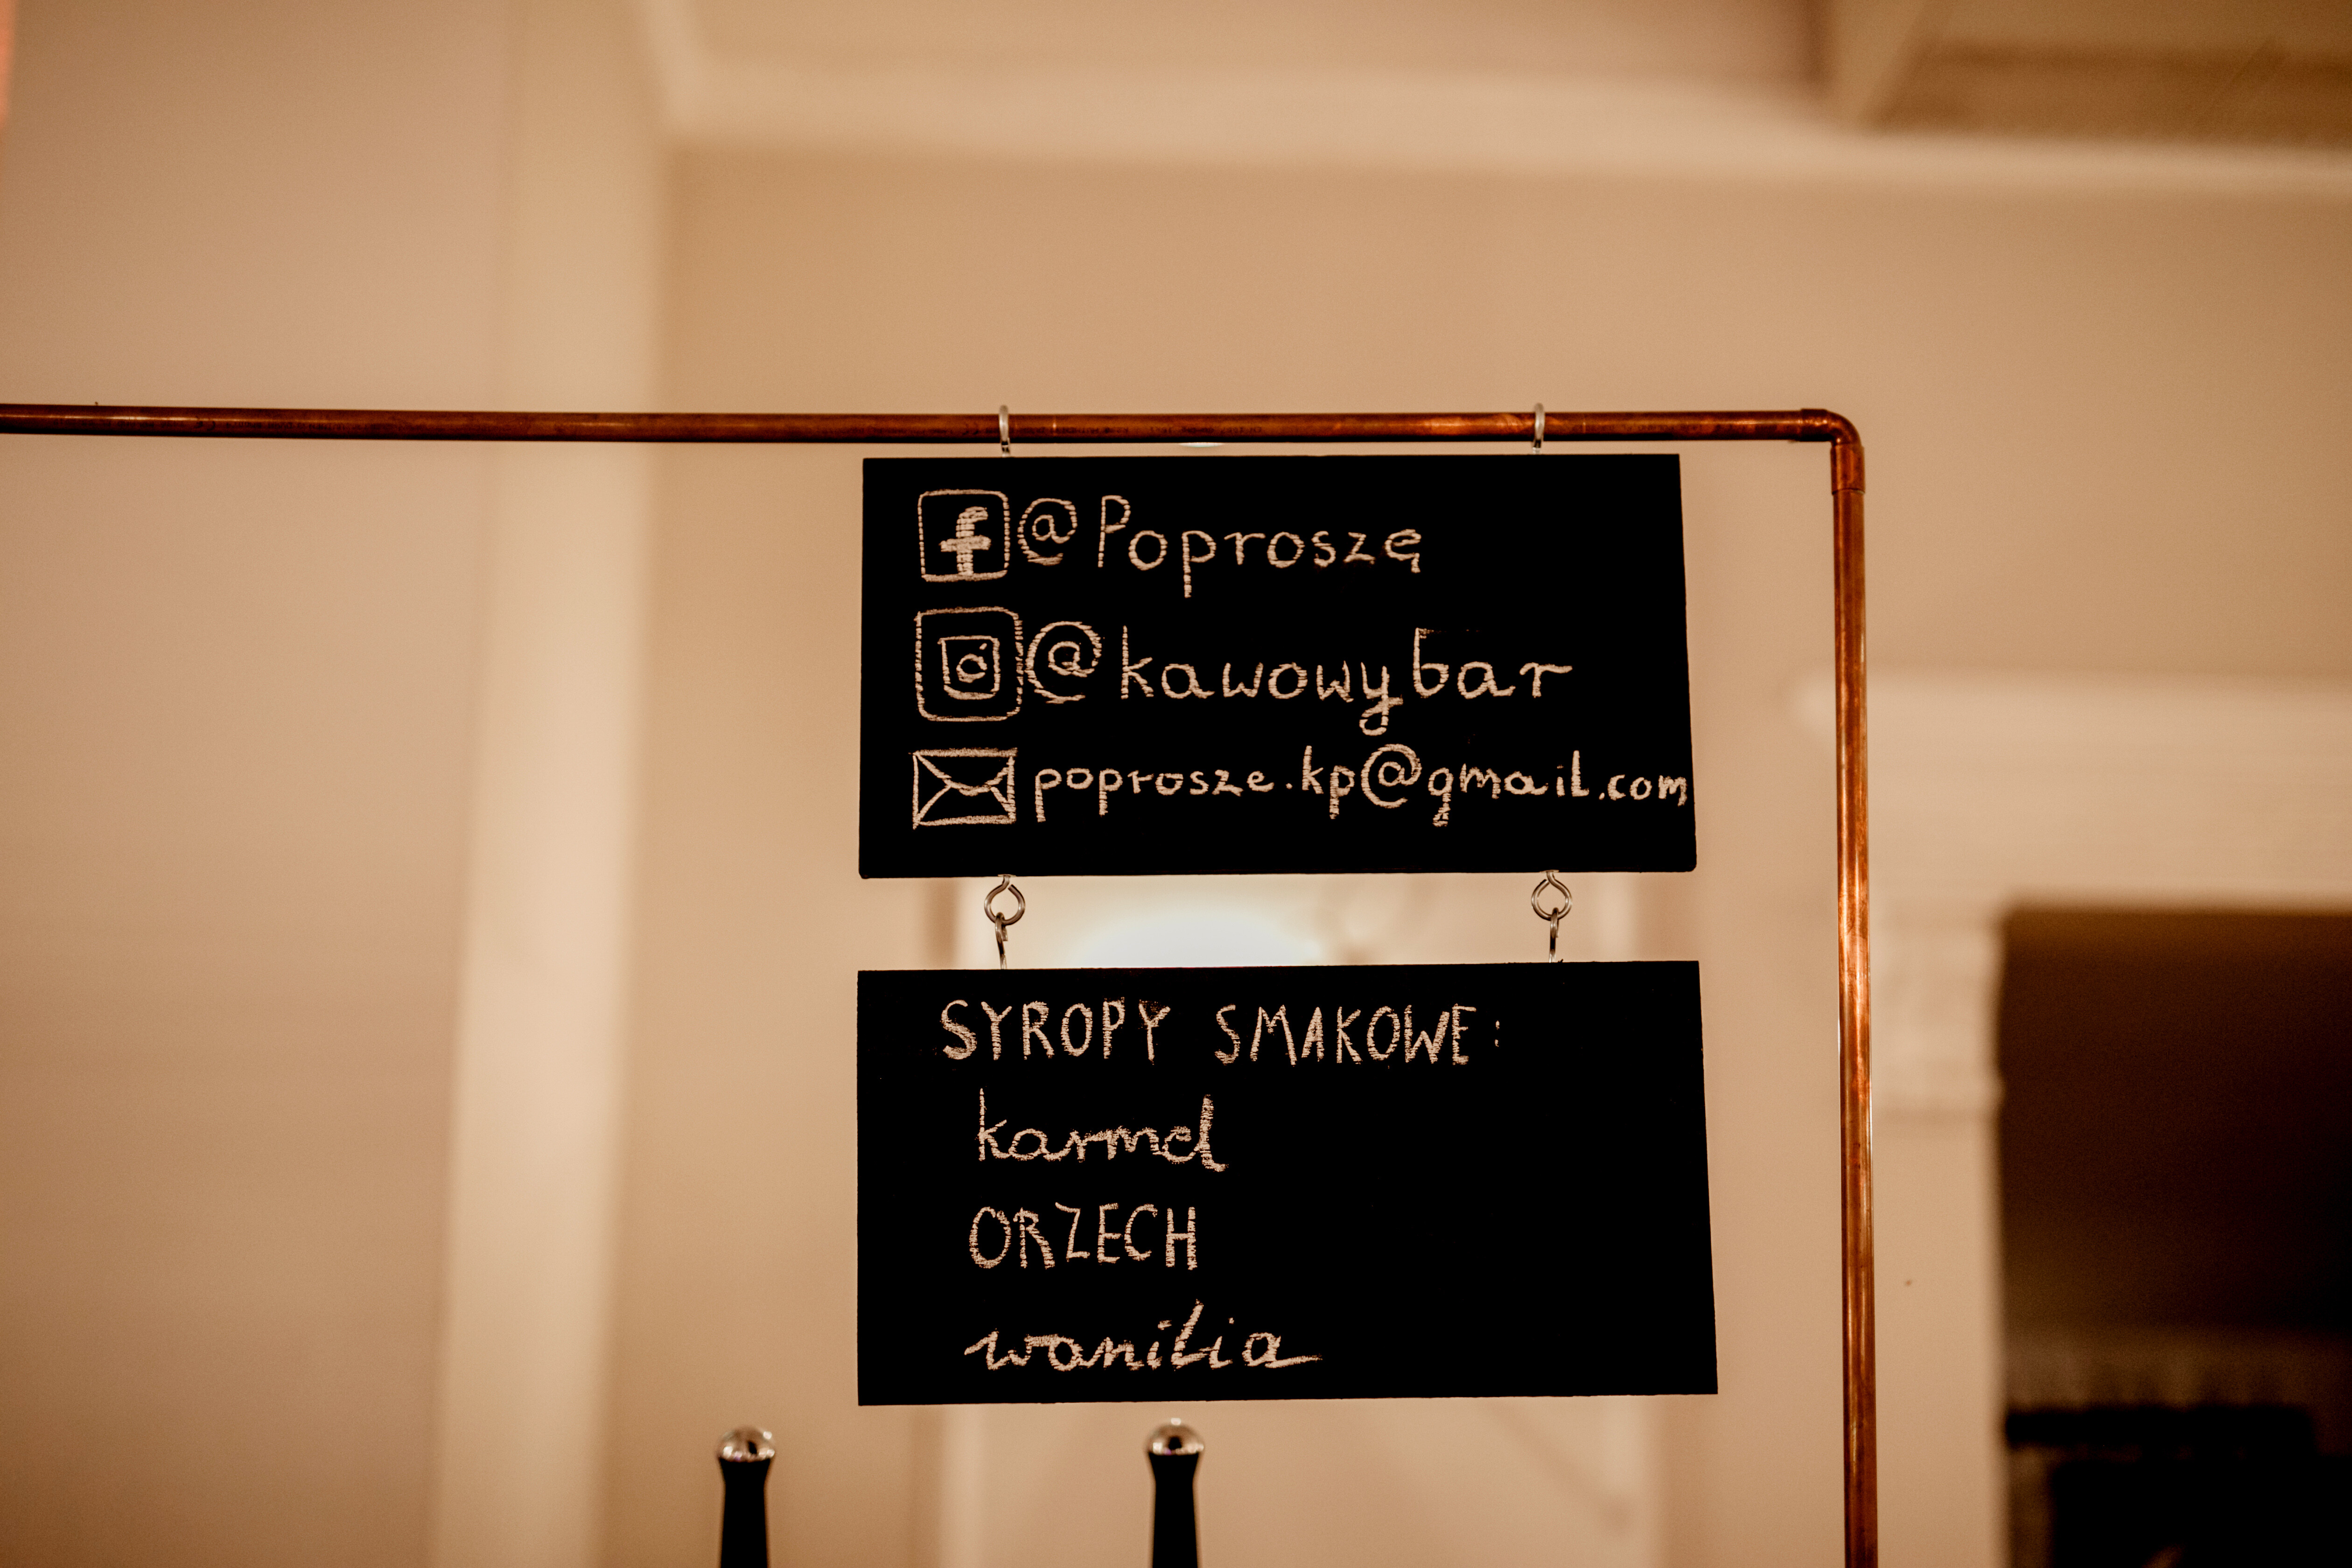 @Poproszę
@kawowybar
poprosze.kp@gmail.com
SYROPY SMAKOWE:
karmel
ORZECH
wanilia